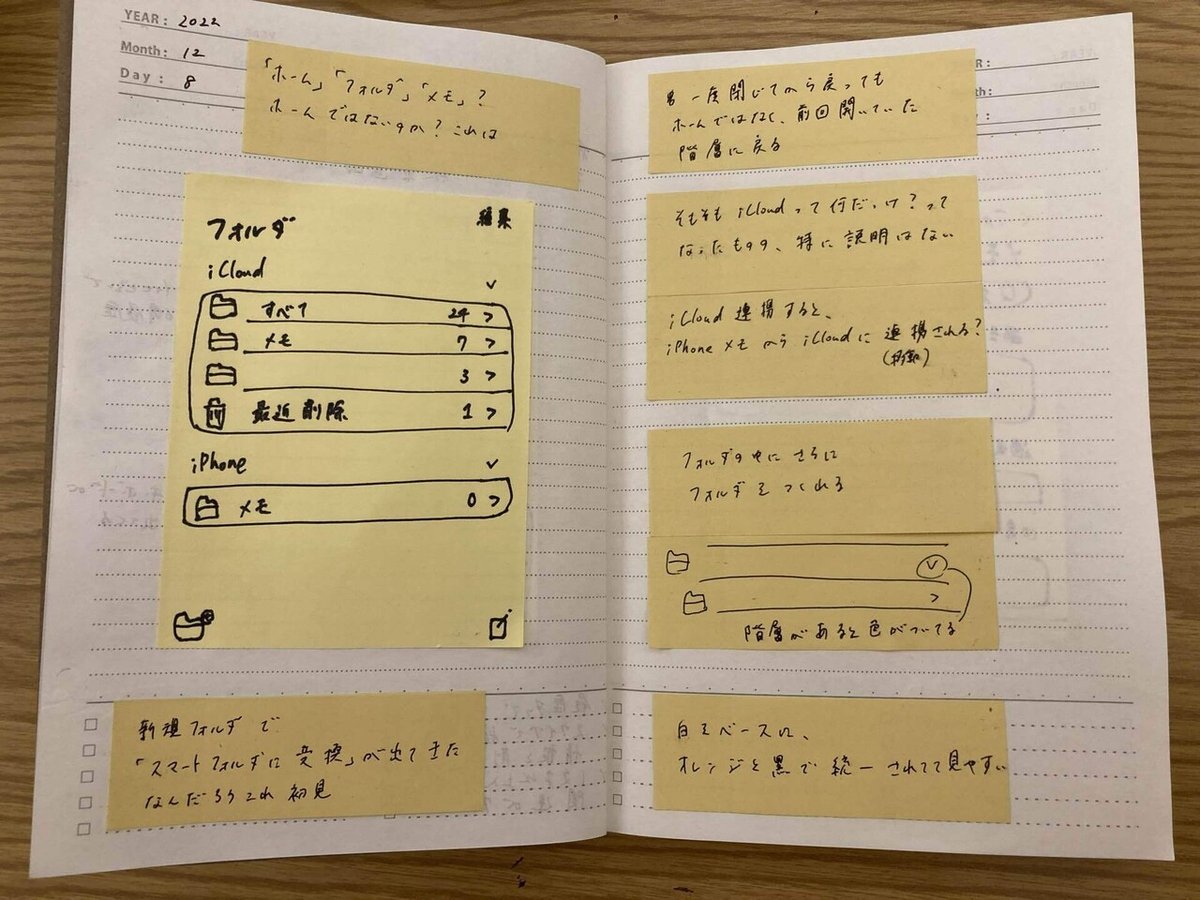 YEAR: 2022
Month: 12
Day: 8
「ホーム」「フォルダ」「メモ」?
ホームではないのか?これは
フォルダ 編集
iCloud
すべて 24 >
メモ 7 >
3 >
最近削除 1 >
iPhone
メモ 0 >
新規フォルダで
「スマートフォルダに変換」が出てきた
なんだろうこれ 初見
一度閉じてから戻っても
ホームではなく、前回開いていた
階層に戻る
そもそも iCloudって何だっけ?って
なったものの、特に説明はない
iCloud連携すると、
iPhoneメモからiCloudに連携される?
(移動)
フォルダの中にさらに
フォルダをつくれる
階層があると色がついてる
白をベースに、
オレンジと黒で統一されてて見やすい